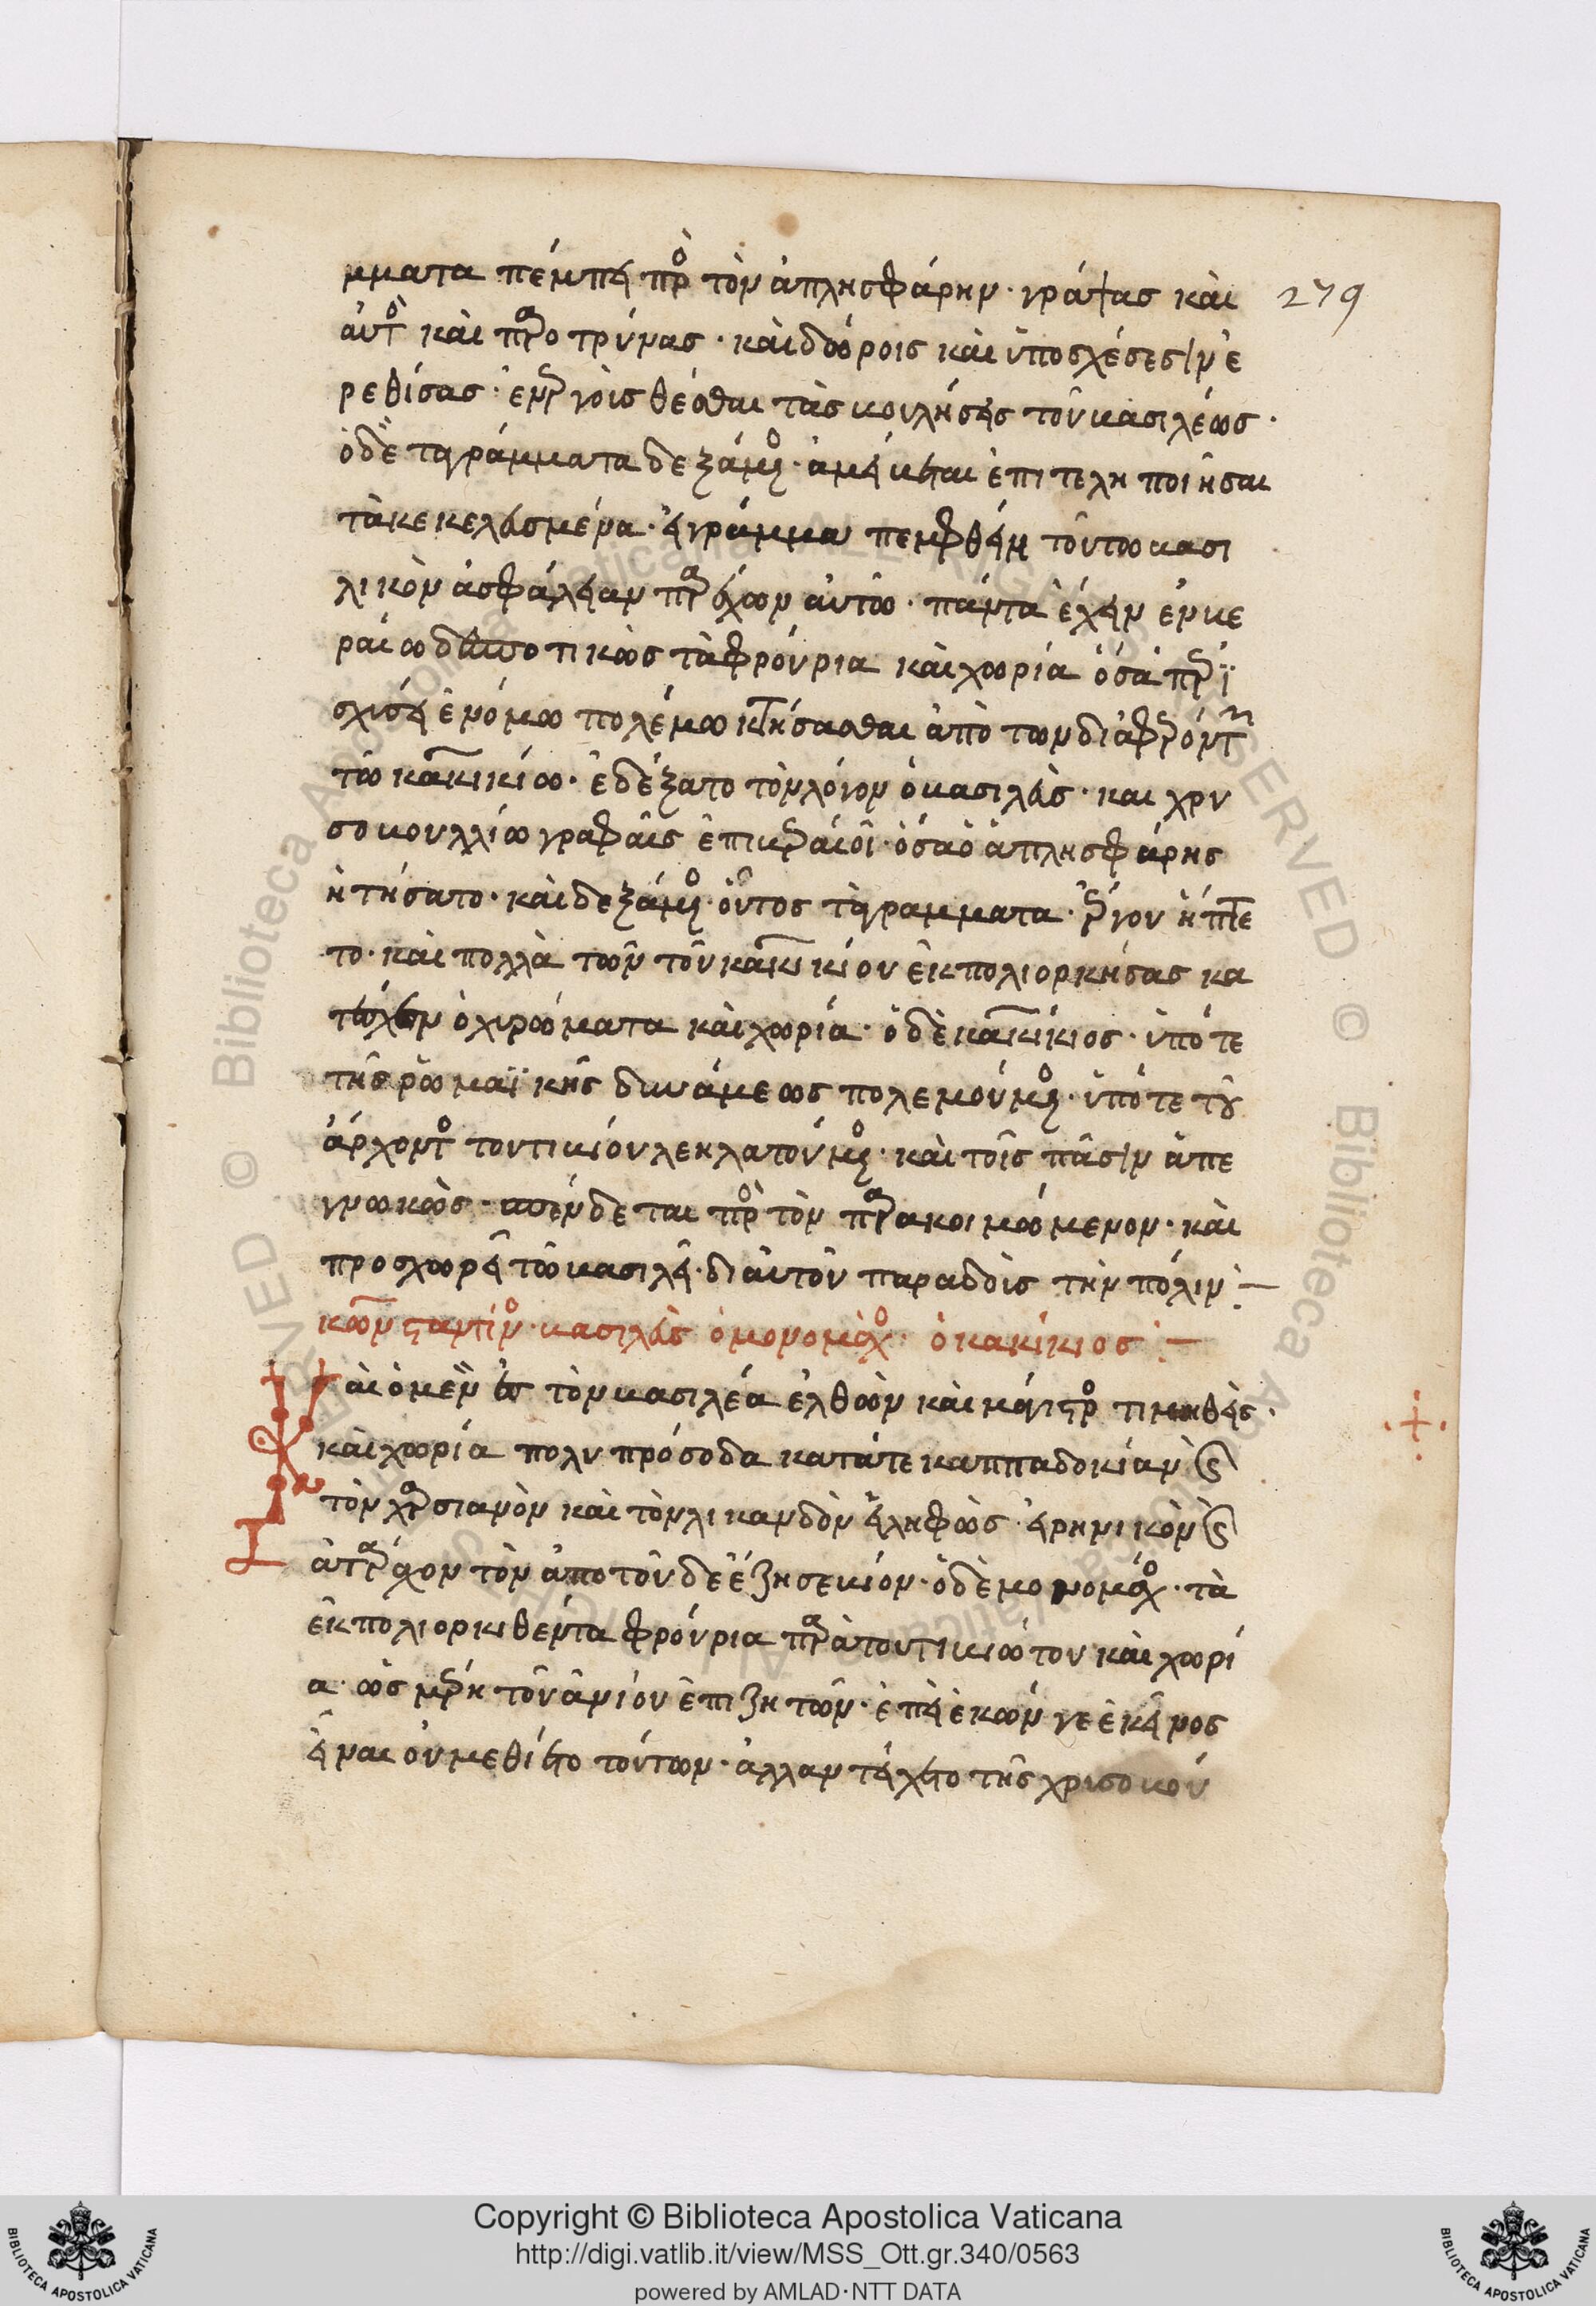 μματα πέμπει πρὸς τὸν ἀπλησφάρην· γράψας καὶ
αὐτὸς καὶ παροτρύνας· καὶ δώροις καὶ ὑποσχέσεσιν ἐ
ρεθίσας· ἐν ἔργοις θέσθαι τὰς βουλήσεις τοῦ βασιλέως·
ὁ δὲ τὰ γράμματα δεξάμενος· ἀμείβεται ἐπιτελῆ ποιῆσαι
τὰ κεκελευσμένα· εἰ γράμμα πεμφθείη τούτω βασι
λικὸν ἀσφάλειαν παρέχων αὐτῶ· πάντα ἔχειν ἐν βε
βαίω δεσποτικῶς τὰ φρούρια καὶ χωρία ὅσα περι
σχήσει ἐν νόμω πολέμω κτήσασθαι ἀπὸ τῶν διαφερόντων
τῶ κακικίω· ἐδέξατο τὸν λόγον ὁ βασιλεὺς· και χρυ
σοβουλλίω γραφαῖς ἐπιβεβαιοῖ· ὅσα ὁ ἀπλησφάρης
ἠτήσατο· καὶ δεξάμενος οὗτος τὰ γραμματα· ἔργου ἥπτε
το· καὶ πολλὰ τῶν τοῦ κακικίου ἐκπολιορκήσας κα
τέσχεν ὀχυρώματα καὶ χωρία· ὁ δὲ κακίκιος· ὑπό τε
τῆς ῥωμαϊκῆς δυνάμεως πολεμούμενος· ὑπό τε τοῦ
ἄρχοντος τουτικίου λεηλατούμενος· καὶ τοῖς πᾶσιν ἀπε
γνωκὼς· σπένδεται πρὸς τὸν παρακοιμώμενον· καὶ
προσχωρεῖ τῶ βασιλεῖ· δι αὐτοῦ παραδοὺς τὴν πόλιν :—
κωνσταντίνος· βασιλεὺς ὁ μονομάχος· ὁ κακίκιος :—
Καὶ ὁ μὲν εἰς τὸν βασιλέα ἐλθὼν καὶ μάγιστρος τιμηθεὶς·
καὶ χωρία πολυπρόσοδα κατά τε καππαδοκίαν καὶ
τὸν χαρσιανὸν καὶ τὸν λικανδὸν εἰληφὼς· εἰρηνικὸν καὶ
ἀτάραχον τὸν ἀπο τοῦδε ἔζησε βίον· ὁ δὲ μονομάχος· τὰ
ἐκπολιορκιθέντα φρούρια παρὰ τουτικιώτου καὶ χωρί
α· ὡς μέρη τοῦ ἀνίου ἐπιζητῶν· ἐπεὶ ἑκών γε ἐκεῖνος
εἶναι οὐ μεθίετο τούτων· ἀλλ αντείχετο τῆς χρισοβού
279
Copyright © Biblioteca Apostolica Vaticana
http://digi.vatlib.it/view/MSS_Ott.gr.340/0563
powered by AMLAD·NTT DATA